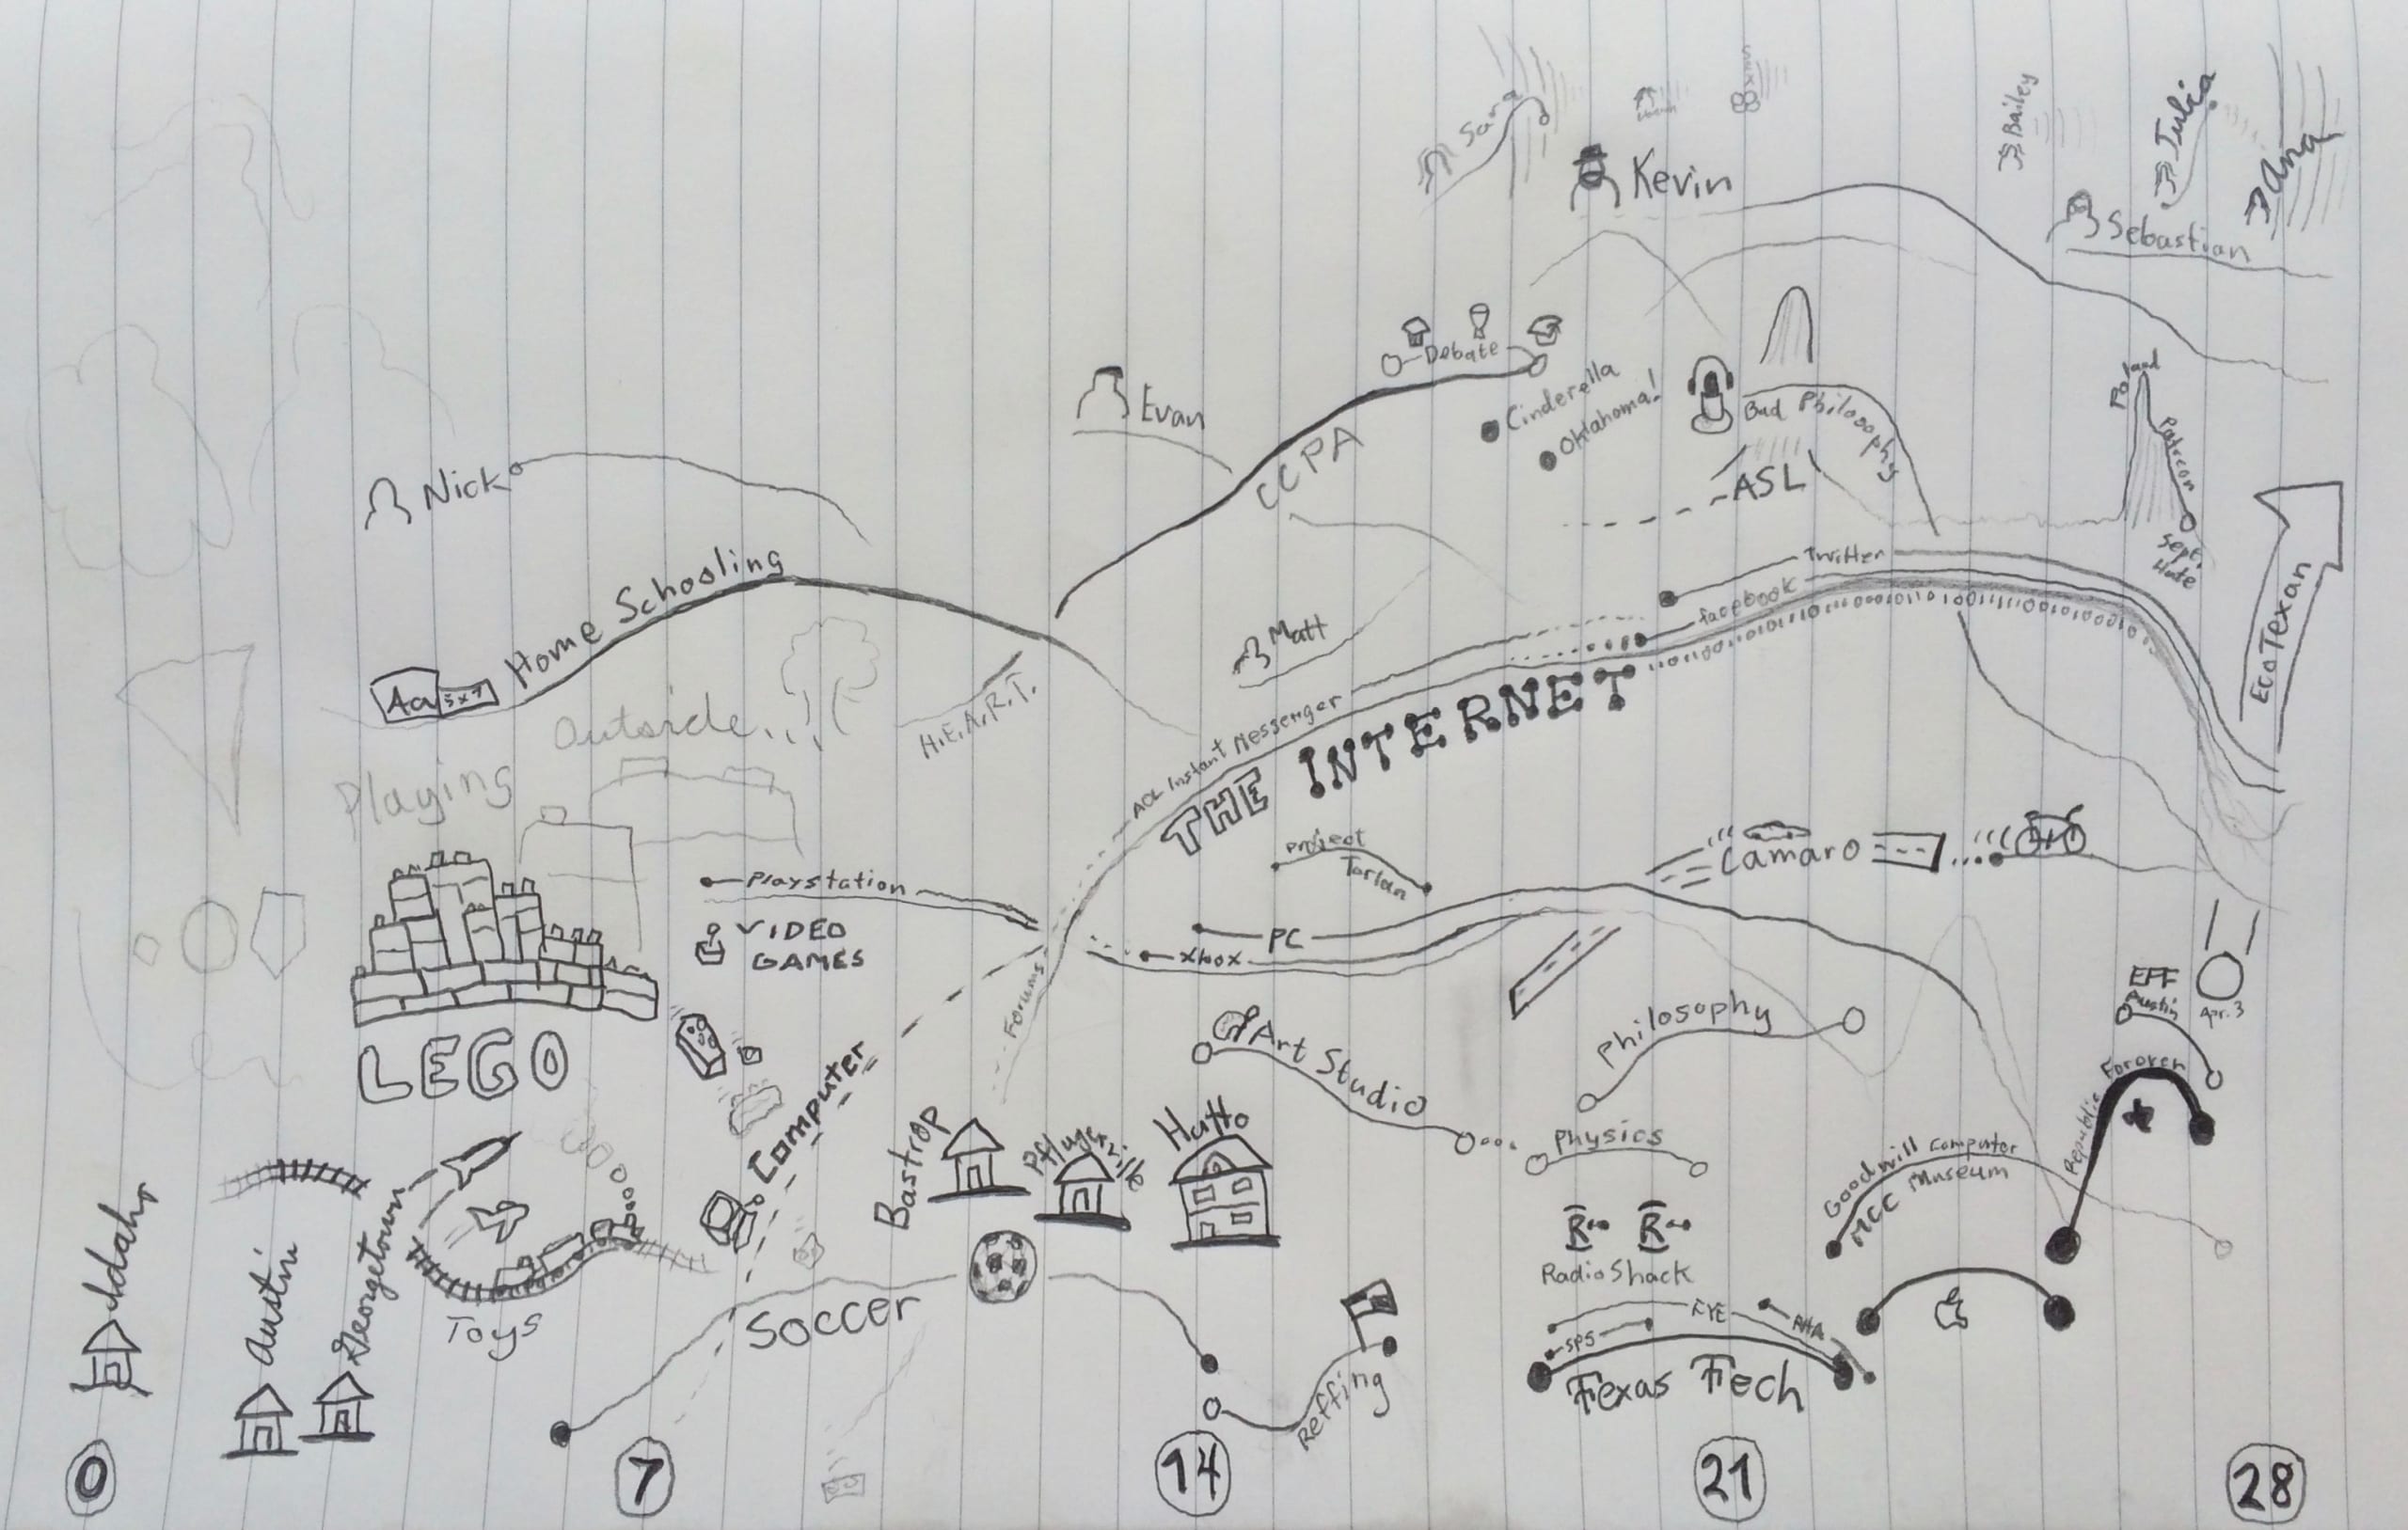 Sara
Kevin
Bailey
Julia
Ana
Sebastian
Debate
Cinderella
Oklahoma!
Evan
CCPA
Bad Philosophy
ASL
Poland
Patreon
Sept.
Hate
Nick
Home Schooling
Aa
5x7
Outside
Playing
H.E.A.R.T.
Matt
Twitter
facebook
AOL Instant Messenger
THE INTERNET
EcoTexan
Project
Torlan
Camaro
Playstation
VIDEO
GAMES
PC
Xbox
Forums
LEGO
Computer
Art Studio
Philosophy
Physics
EFF
Austin
Apr. 3
Republic Forever
Goodwill Computer
Museum
MCC
Bastrop
Pflugerville
Hutto
Idaho
Austin
Georgetown
Toys
Soccer
Reffing
RadioShack
FYE
SPS
RHA
Texas Tech
0
7
14
21
28